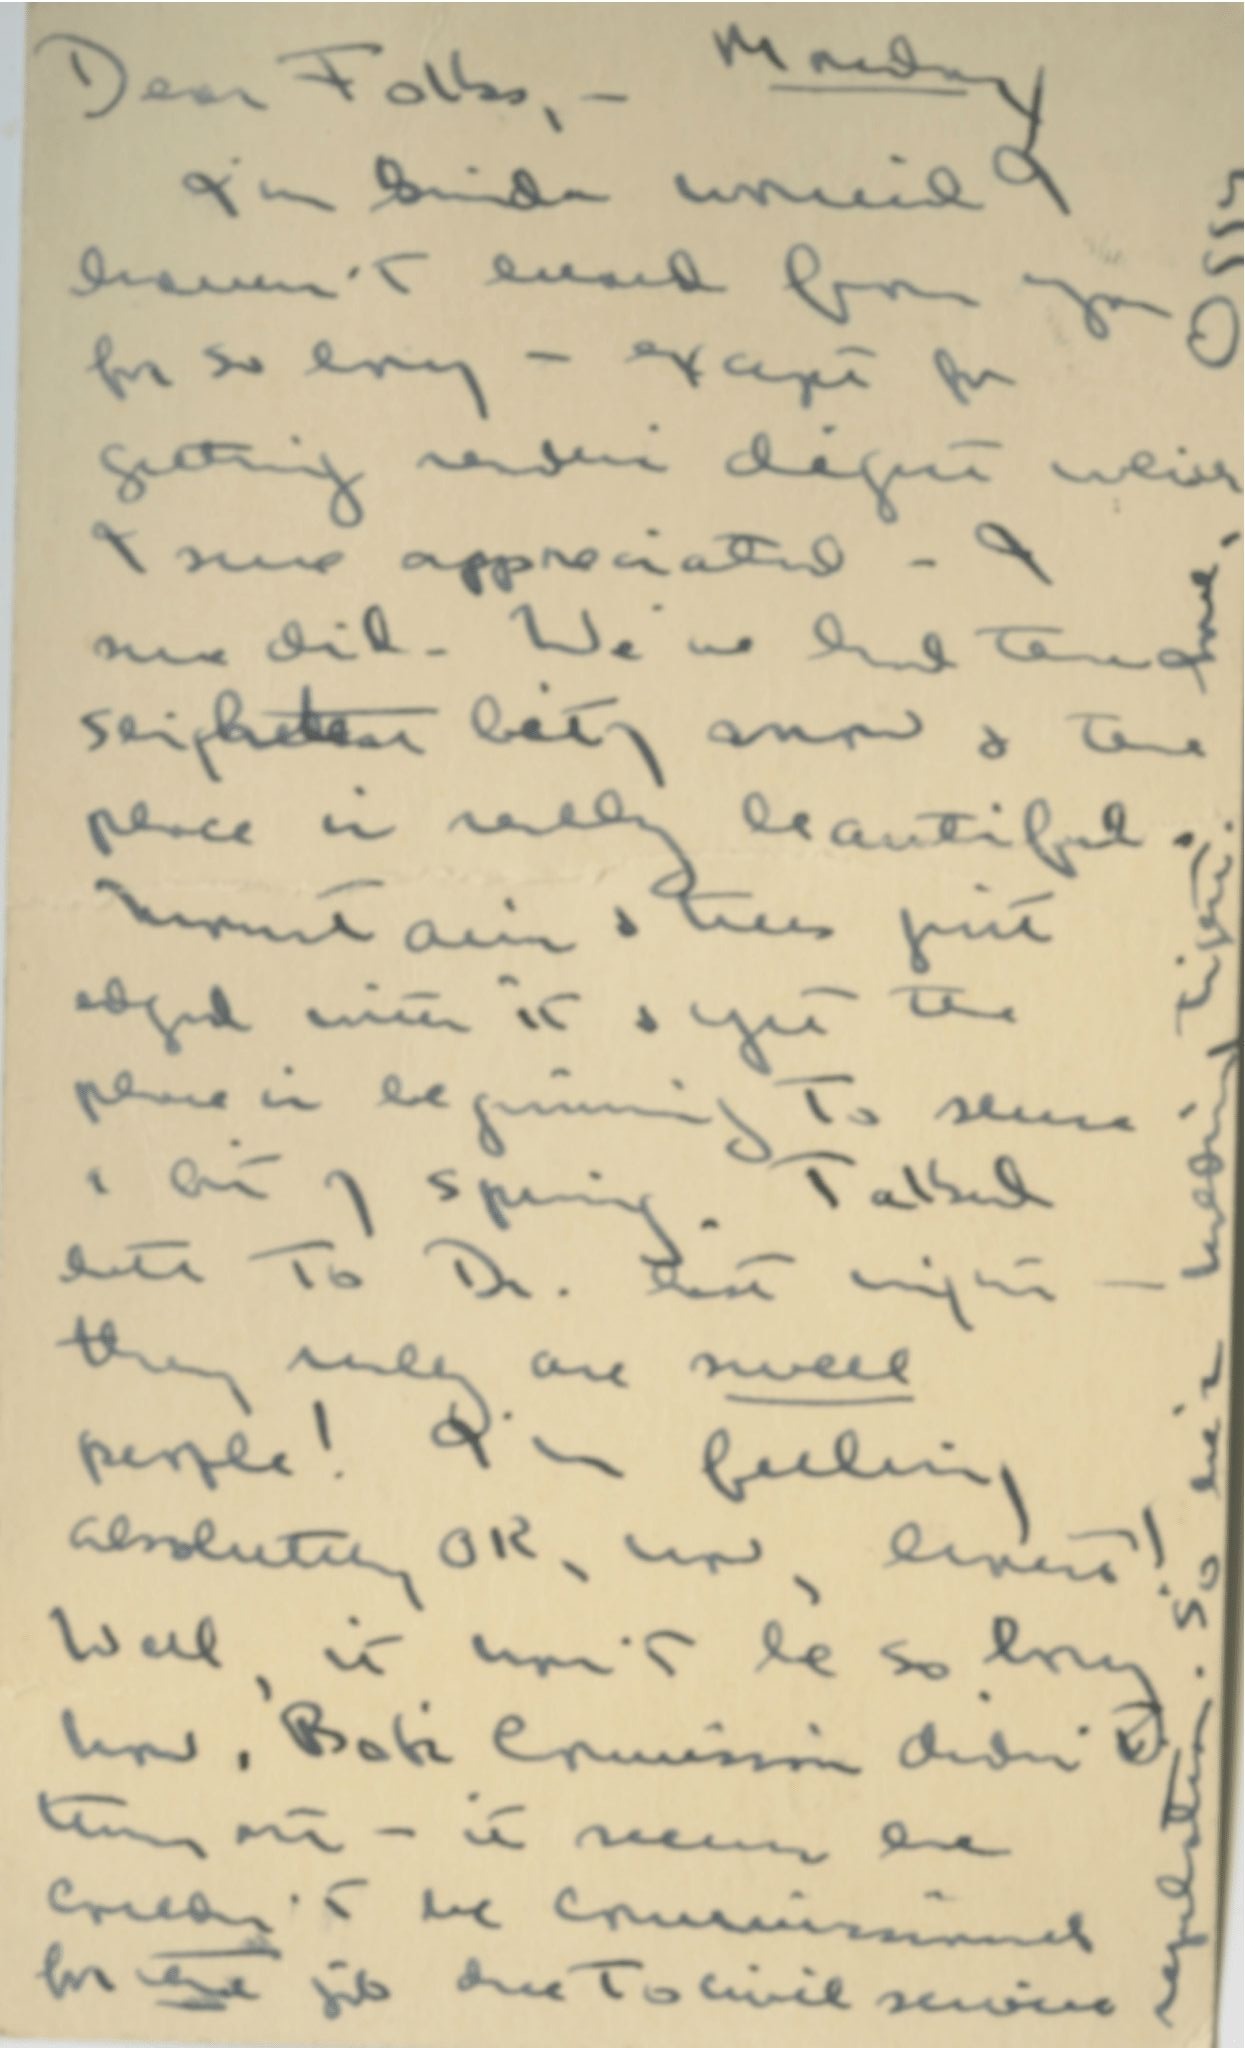 Monday
Dear Folks, –
I'm kinda worried I
haven't heard from you
for so long – except for
getting readers digest which
I sure appreciated – I
sure did – We've had the
bit of snow & the
place is really beautiful.
Mountains & trees just
edged with it & yet the
place is beginning to sense
a bit of spring. Talked
late to Dr. last night –
they really are swell
people! I'm feeling
absolutely OK, now, honest!
Well, it won't be so long
now. Bob's Commission didn't
turn out – it seems he
couldn't be commissioned
for the job due to civil service
regulations. So he's waiting